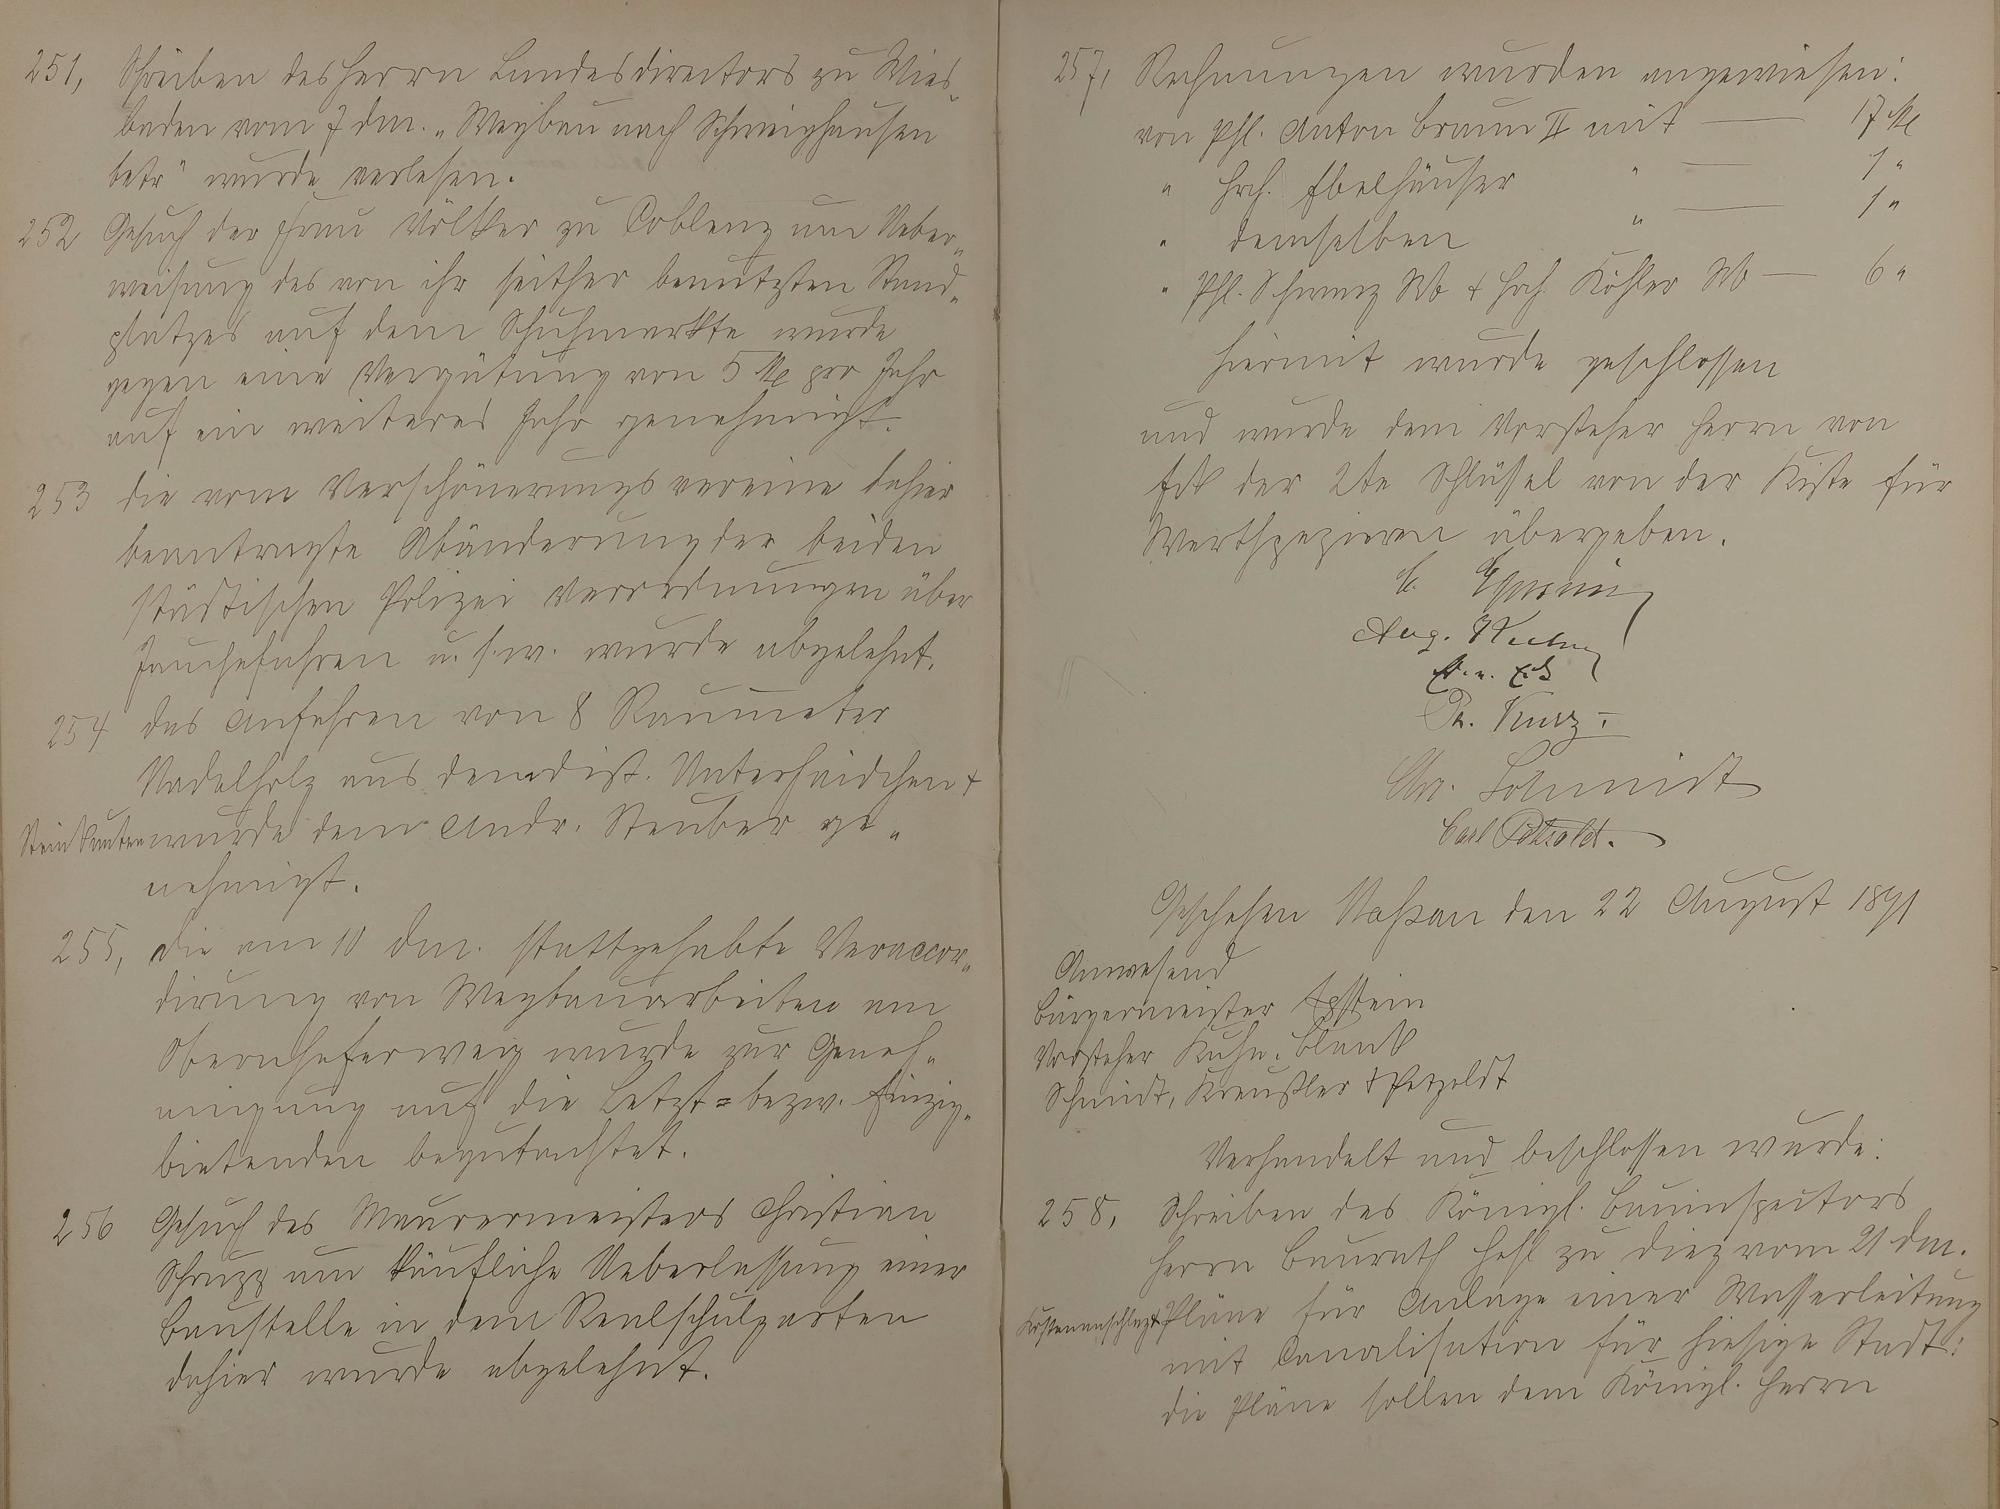 251, Schreiben des Herrn Landesdirectors zu Wies-
baden vom 7 dm. „Wegbau nach Schweighausen
betr" wurde verlesen.
252 Gesuch der Frau Völker zu Coblenz um Ueber-
weisung des von ihr seither benutzten Stand-
platzes auf dem Schuhmarkte wurde
gegen eine Vergütung von 5 M pro Jahr
auf ein weiteres Jahr genehmigt.
253 die vom Verschönerungsvereine dahier
beantragte Abänderung der beiden
städtischen Polizei Verordnungen über
Jauchefahren u. s. w. wurde abgelehnt.
254 das Anfahren von 8 Raummeter
Nadelholz aus dem Dist. Unterhaidchen +
Steinkauten wurde dem Andr. Steuber ge-
nehmigt.
255, die am 10 dm. stattgehabte Veraccor-
dirung von Wegbauarbeiten am
Obernhoferweg wurde zur Geneh-
migung auf die Letzt= bezw. Einzig-
bietenden begutachtet.
256 Gesuch des Maurermeisters Christian
Schrupp um käufliche Ueberlassung einer
Baustelle in dem Realschulgarten
dahier wurde abgelehnt.
257, Rechnungen wurden angewiesen:
von Phl. Anton Braun II mit — 17 M
" Hch. Ebelhäuser " — 1 "
" demselben " — 1 "
" Phl. Schwarz Wb + Hch. Köhler Wb — 6 "
Hiermit wurde geschlossen
und wurde dem Vorsteher Herrn von
Eck der 2te Schlüssel von der Kiste für
Werthpapieren übergeben.
Aug. Kuhn
v. Eck
Kurz.
Schmidt
Carl Petzoldt.
Geschehen Nassau den 22 August 1891
Anwesend
Bürgermeister Epstein
Vorsteher Kuhn, Blank
Schmidt, Kreußler + Petzoldt
Verhandelt und beschlossen wurde:
258, Schreiben des Königl. Bauinspectors
Herrn Baurath Hehl zu Diez vom 21 dm.
Kostenanschlag + Pläne für Anlage einer Wasserleitung
mit Canalisation für hiesige Stadt:
die Pläne sollen dem Königl. Herrn